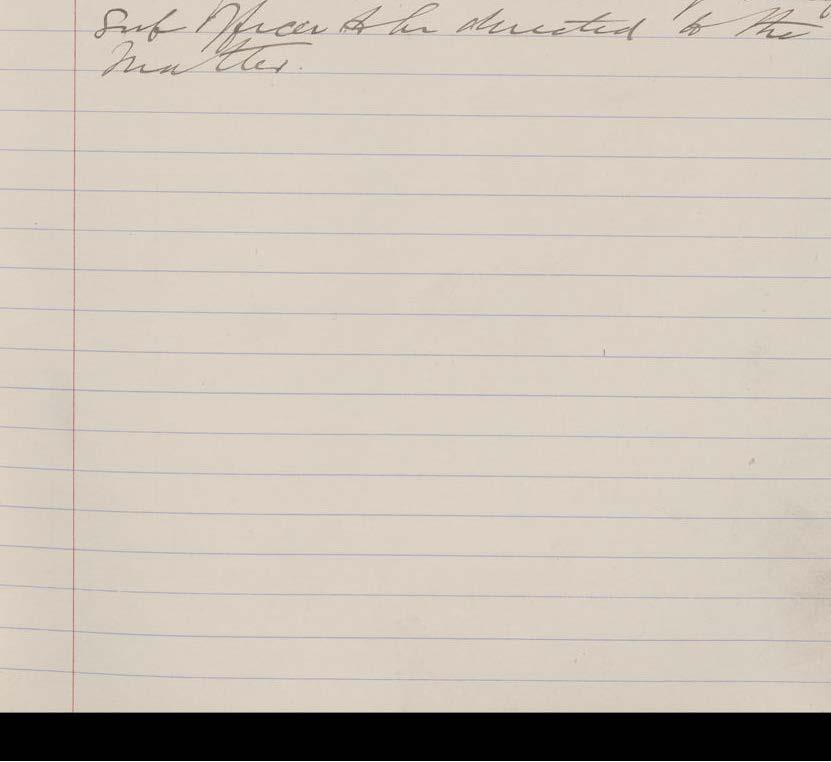 Sub Officer to be directed to the
Matter.